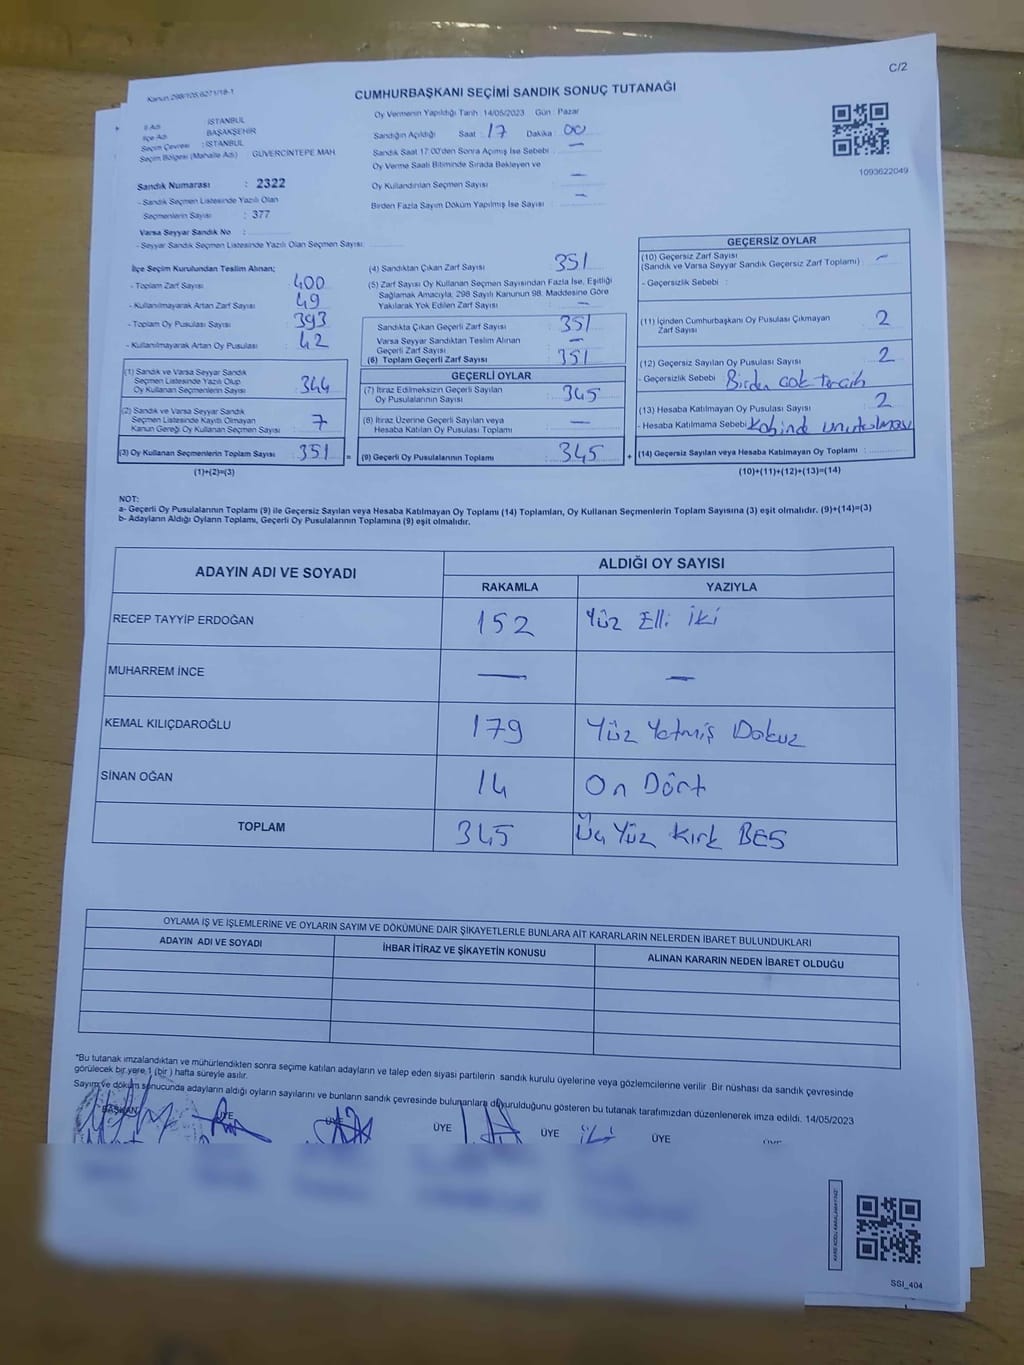 C/2
Kanun 298/105,6271/18-1
CUMHURBAŞKANI SEÇİMİ SANDIK SONUÇ TUTANAĞI
İl Adı : İSTANBUL
İlçe Adı : BAŞAKŞEHİR
Seçim Çevresi : İSTANBUL
Seçim Bölgesi (Mahalle Adı) : GÜVERCİNTEPE MAH.
Oy Vermenin Yapıldığı Tarih : 14/05/2023 Gün : Pazar
Sandığın Açıldığı Saat : 17 Dakika : 00
Sandık Saat 17:00'den Sonra Açılmış İse Sebebi : —
Oy Verme Saati Bitiminde Sırada Bekleyen ve
Oy Kullandırılan Seçmen Sayısı : —
Birden Fazla Sayım Döküm Yapılmış İse Sayısı : —
1093622049
Sandık Numarası : 2322
- Sandık Seçmen Listesinde Yazılı Olan
Seçmenlerin Sayısı : 377
Varsa Seyyar Sandık No :
- Seyyar Sandık Seçmen Listesinde Yazılı Olan Seçmen Sayısı:
İlçe Seçim Kurulundan Teslim Alınan;
- Toplam Zarf Sayısı : 400
- Kullanılmayarak Artan Zarf Sayısı : 49
- Toplam Oy Pusulası Sayısı : 393
- Kullanılmayarak Artan Oy Pusulası : 42
(1) Sandık ve Varsa Seyyar Sandık
Seçmen Listesinde Yazılı Olup
Oy Kullanan Seçmenlerin Sayısı : 344
(2) Sandık ve Varsa Seyyar Sandık
Seçmen Listesinde Kayıtlı Olmayan
Kanun Gereği Oy Kullanan Seçmen Sayısı : 7
(3) Oy Kullanan Seçmenlerin Toplam Sayısı : 351
(1)+(2)=(3)
(4) Sandıktan Çıkan Zarf Sayısı : 351
(5) Zarf Sayısı Oy Kullanan Seçmen Sayısından Fazla İse, Eşitliği
Sağlamak Amacıyla; 298 Sayılı Kanunun 98. Maddesine Göre
Yakılarak Yok Edilen Zarf Sayısı : —
Sandıkta Çıkan Geçerli Zarf Sayısı : 351
Varsa Seyyar Sandıktan Teslim Alınan
Geçerli Zarf Sayısı : —
(6) Toplam Geçerli Zarf Sayısı : 351
GEÇERLİ OYLAR
(7) İtiraz Edilmeksizin Geçerli Sayılan
Oy Pusulalarının Sayısı : 345
(8) İtiraz Üzerine Geçerli Sayılan veya
Hesaba Katılan Oy Pusulası Toplamı : —
= (9) Geçerli Oy Pusulalarının Toplamı : 345 +
GEÇERSİZ OYLAR
(10) Geçersiz Zarf Sayısı
(Sandık ve Varsa Seyyar Sandık Geçersiz Zarf Toplamı) : —
- Geçersizlik Sebebi :
(11) İçinden Cumhurbaşkanı Oy Pusulası Çıkmayan
Zarf Sayısı : 2
(12) Geçersiz Sayılan Oy Pusulası Sayısı : 2
- Geçersizlik Sebebi : Birden çok tercih
(13) Hesaba Katılmayan Oy Pusulası Sayısı : 2
- Hesaba Katılmama Sebebi : Kabinde unutulması
(14) Geçersiz Sayılan veya Hesaba Katılmayan Oy Toplamı :
(10)+(11)+(12)+(13)=(14)
NOT:
a- Geçerli Oy Pusulalarının Toplamı (9) ile Geçersiz Sayılan veya Hesaba Katılmayan Oy Toplamı (14) Toplamları, Oy Kullanan Seçmenlerin Toplam Sayısına (3) eşit olmalıdır. (9)+(14)=(3)
b- Adayların Aldığı Oyların Toplamı, Geçerli Oy Pusulalarının Toplamına (9) eşit olmalıdır.
ADAYIN ADI VE SOYADI ALDIĞI OY SAYISI
RAKAMLA YAZIYLA
RECEP TAYYİP ERDOĞAN 152 Yüz Elli İki
MUHARREM İNCE — —
KEMAL KILIÇDAROĞLU 179 Yüz Yetmiş Dokuz
SİNAN OĞAN 14 On Dört
TOPLAM 345 Üç Yüz Kırk BEŞ
OYLAMA İŞ VE İŞLEMLERİNE VE OYLARIN SAYIM VE DÖKÜMÜNE DAİR ŞİKAYETLERLE BUNLARA AİT KARARLARIN NELERDEN İBARET BULUNDUKLARI
ADAYIN ADI VE SOYADI İHBAR İTİRAZ VE ŞİKAYETİN KONUSU ALINAN KARARIN NEDEN İBARET OLDUĞU
*Bu tutanak imzalandıktan ve mühürlendikten sonra seçime katılan adayların ve talep eden siyasi partilerin sandık kurulu üyelerine veya gözlemcilerine verilir. Bir nüshası da sandık çevresinde
görülecek bir yere 1 (bir) hafta süreyle asılır.
Sayım ve döküm sonucunda adayların aldığı oyların sayılarını ve bunların sandık çevresinde bulunanlara duyurulduğunu gösteren bu tutanak tarafımızdan düzenlenerek imza edildi. 14/05/2023
BAŞKAN ÜYE ÜYE ÜYE ÜYE ÜYE
SSI_404